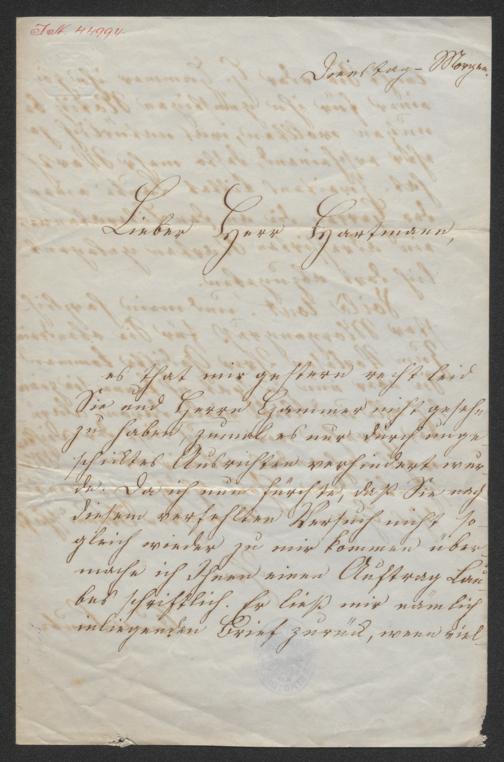 I.N. 44994
Dienstag-Morgen.
Lieber Herr Hartmann,
es that mir gestern recht leid
Sie und Herrn Hammer nicht gesehn
zu haben, zumal es nur durch unge
schicktes Ausrichten verhindert wur
de. Da ich nun fürchte, daß Sie nach
diesem verfehlten Versuch nicht so-
gleich wieder zu mir kommen über-
mache ich Ihnen einen Auftrag Lau-
bes schriftlich. Er ließ mir nämlich
inliegenden Brief zurück, wenn viel-